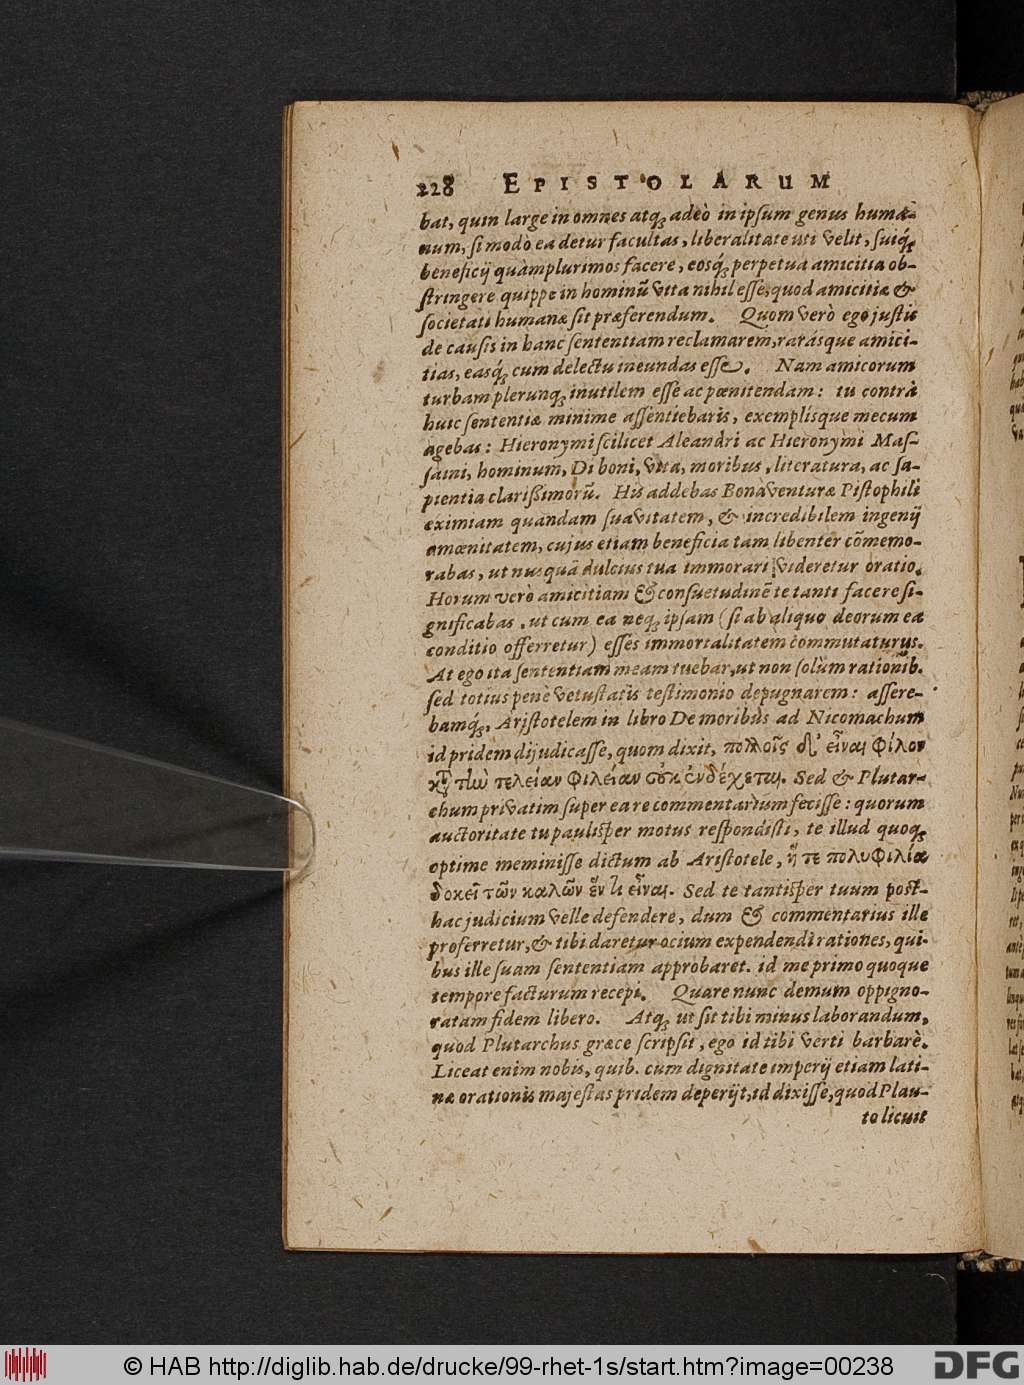 228 EPISTOLARUM
bat, quin large in omnes atq́; adeò in ipsum genus huma-
num, si modò ea detur facultas, liberalitate uti velit, suiq́;
beneficij quàmplurimos facere, eosq́; perpetua amicitia ob-
stringere quippe in hominũ vita nihil esse, quod amicitiæ &
societati humanæ sit præferendum. Quom verò ego justis
de causis in hanc sententiam reclamarem, rarásque amici-
tias, easq́; cum delectu ineundas esse. Nam amicorum
turbam plerunq; inutilem esse ac pœnitendam: tu contrà
huic sententiæ minime assentiebaris, exemplisque mecum
agebas: Hieronymi scilicet Aleandri ac Hieronymi Mas-
saini, hominum, Di boni, vita, moribus, literatura, ac sa-
pientia clarißimorũ. His addebas Bonaventuræ Pistophili
eximiam quandam suavitatem, & incredibilem ingenij
amœnitatem, cujus etiam beneficia tam libenter cõmemo-
rabas, ut nusquã dulcius tua immorari videretur oratio.
Horum verò amicitiam & consuetudinẽ te tanti facere si-
gnificabas, ut cum ea neq; ipsam (si ab aliquo deorum ea
conditio offerretur) esses immortalitatem commutaturus.
At ego ita sententiam meam tuebar, ut non solùm rationib.
sed totius penè vetustatis testimonio depugnarem: assere-
bamq́;, Aristotelem in libro De moribus ad Nicomachum
id pridem dijudicasse, quom dixit, πολλοῖς δ’ εἶναι φίλον
κτ̀ τἰω τελείαν φιλείαν οὐκ ἐνδέχεται. Sed & Plutar-
chum privatim super ea re commentarium fecisse: quorum
auctoritate tu paulisper motus respondisti, te illud quoq;
optime meminisse dictum ab Aristotele, ἥ τε πολυφιλία
δοκεῖ τῶν καλῶν ἕν τι εἶναι. Sed te tantisper tuum post-
hac judicium velle defendere, dum & commentarius ille
proferretur, & tibi daretur ocium expendendi rationes, qui-
bus ille suam sententiam approbaret. id me primo quoque
tempore facturum recepi. Quare nunc demum oppigno-
ratam fidem libero. Atq; ut sit tibi minus laborandum,
quod Plutarchus græce scripsit, ego id tibi verti barbarè.
Liceat enim nobis, quib. cum dignitate imperij etiam lati-
næ orationis majestas pridem deperijt, id dixisse, quod Plau-
to licuit
© HAB http://diglib.hab.de/drucke/99-rhet-1s/start.htm?image=00238
DFG